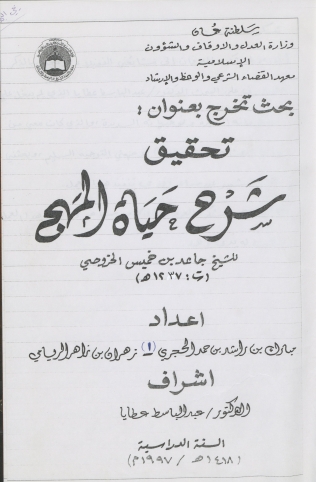 سلطنة عمان
وزارة العدل والاوقاف والشؤون
الإسلامية
معهد القضاء الشرعي والوعظ والإرشاد
بحث تخرج بعنوان :
تحقيق
شرح حياة المهج
للشيخ جاعد بن خميس الخروصي
(ت: ١٢٣٧ھ)
اعداد
مبارك بن راشد بن حمد الحجري (١) زهران بن زاهر الريامي
اشراف
الدكتور/ عبدالباسط عطايا
السنة الدراسية
(١٤١٨ھ / ١٩٩٧م)